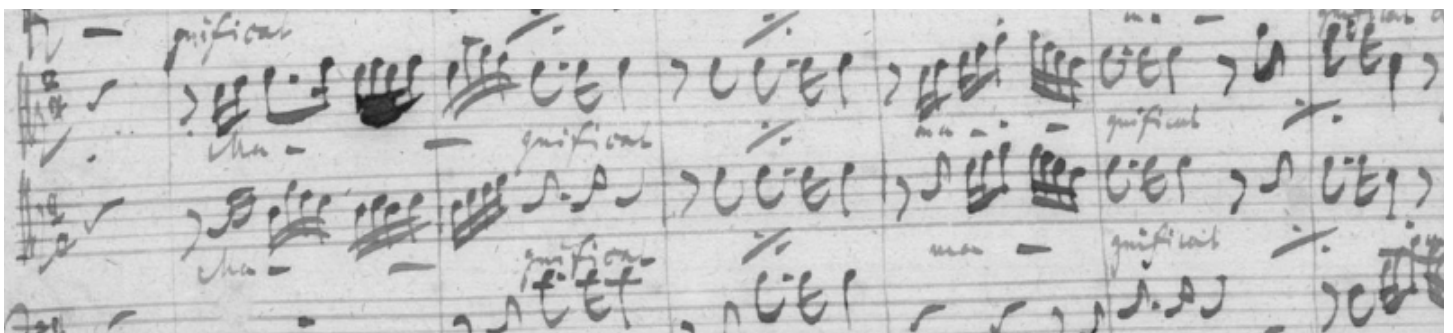 gnificat
gnificat
Ma - - gnificat ma - - gnificat
Ma - - gnificat ma - gnificat